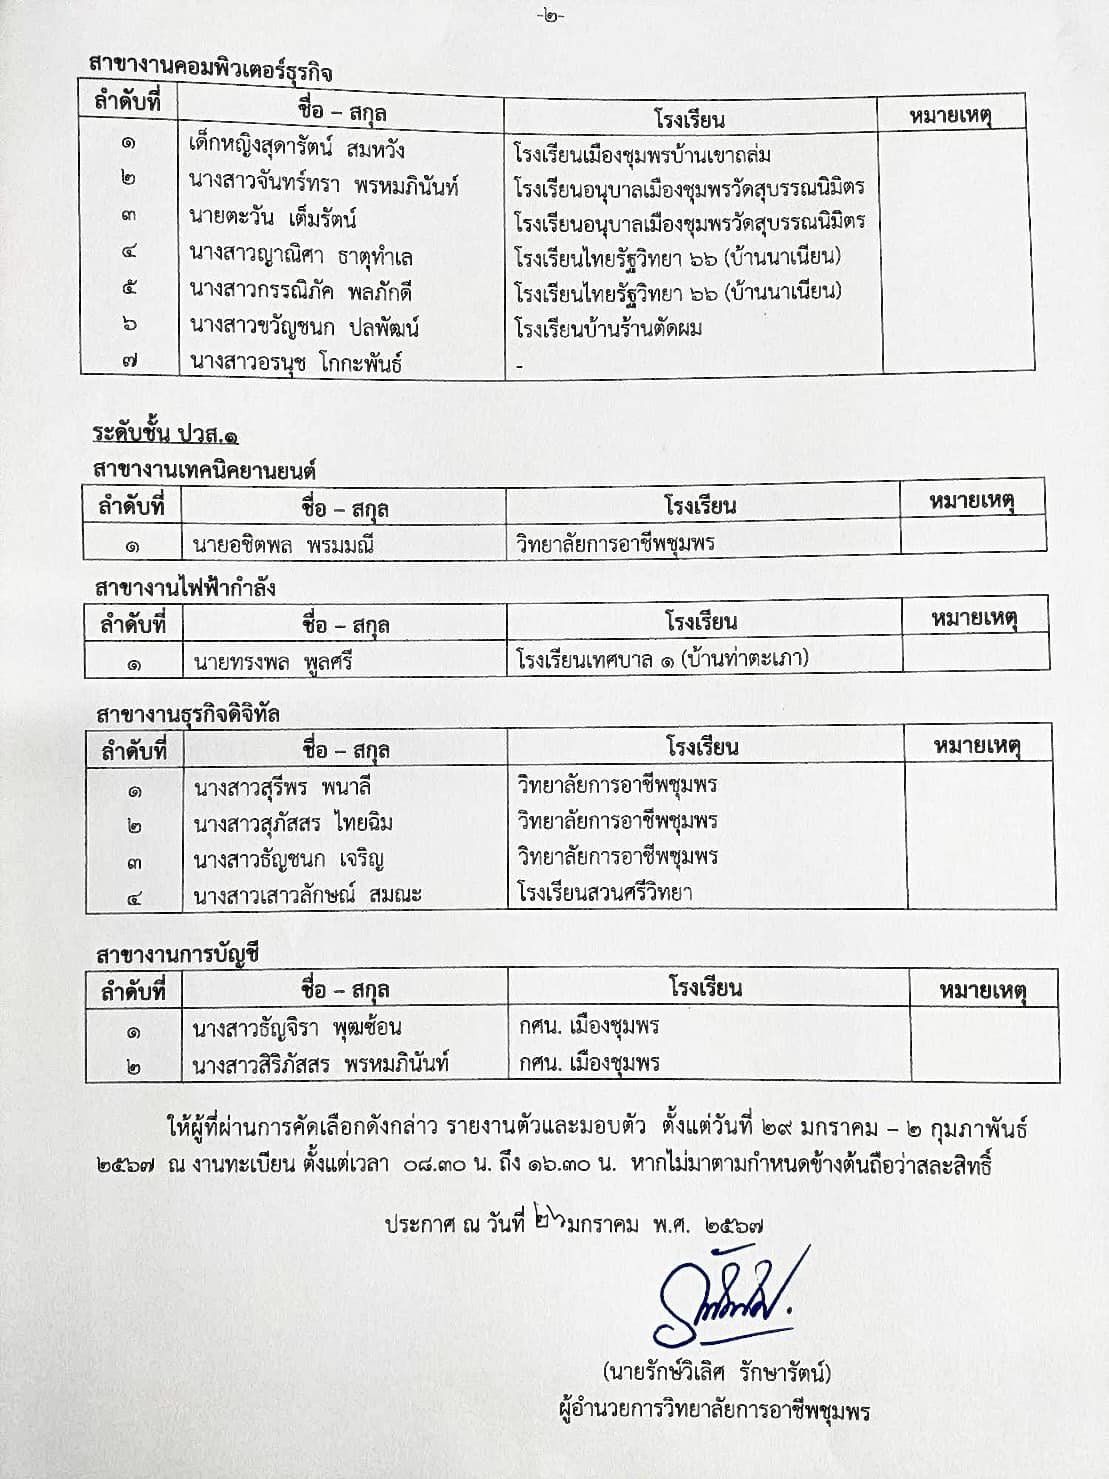 -๒-
สาขางานคอมพิวเตอร์ธุรกิจ
ลำดับที่ ชื่อ – สกุล โรงเรียน หมายเหตุ
๑ เด็กหญิงสุดารัตน์ สมหวัง โรงเรียนเมืองชุมพรบ้านเขาถล่ม
๒ นางสาวจันทร์ทรา พรหมภินันท์ โรงเรียนอนุบาลเมืองชุมพรวัดสุบรรณนิมิตร
๓ นายตะวัน เต็มรัตน์ โรงเรียนอนุบาลเมืองชุมพรวัดสุบรรณนิมิตร
๔ นางสาวญาณิศา ธาตุทำเล โรงเรียนไทยรัฐวิทยา ๖๖ (บ้านนาเนียน)
๕ นางสาวกรรณิภัค พลภักดี โรงเรียนไทยรัฐวิทยา ๖๖ (บ้านนาเนียน)
๖ นางสาวขวัญชนก ปลพัฒน์ โรงเรียนบ้านร้านตัดผม
๗ นางสาวอรนุช โกกะพันธ์ -
ระดับชั้น ปวส.๑
สาขางานเทคนิคยานยนต์
ลำดับที่ ชื่อ – สกุล โรงเรียน หมายเหตุ
๑ นายอชิตพล พรมมณี วิทยาลัยการอาชีพชุมพร
สาขางานไฟฟ้ากำลัง
ลำดับที่ ชื่อ – สกุล โรงเรียน หมายเหตุ
๑ นายทรงพล พูลศรี โรงเรียนเทศบาล ๑ (บ้านท่าตะเภา)
สาขางานธุรกิจดิจิทัล
ลำดับที่ ชื่อ – สกุล โรงเรียน หมายเหตุ
๑ นางสาวสุรีพร พนาลี วิทยาลัยการอาชีพชุมพร
๒ นางสาวสุภัสสร ไทยฉิม วิทยาลัยการอาชีพชุมพร
๓ นางสาวธัญชนก เจริญ วิทยาลัยการอาชีพชุมพร
๔ นางสาวเสาวลักษณ์ สมณะ โรงเรียนสวนศรีวิทยา
สาขางานการบัญชี
ลำดับที่ ชื่อ – สกุล โรงเรียน หมายเหตุ
๑ นางสาวธัญจิรา พุฒซ้อน กศน. เมืองชุมพร
๒ นางสาวสิริภัสสร พรหมภินันท์ กศน. เมืองชุมพร
ให้ผู้ที่ผ่านการคัดเลือกดังกล่าว รายงานตัวและมอบตัว ตั้งแต่วันที่ ๒๙ มกราคม – ๒ กุมภาพันธ์
๒๕๖๗ ณ งานทะเบียน ตั้งแต่เวลา ๐๘.๓๐ น. ถึง ๑๖.๓๐ น. หากไม่มาตามกำหนดข้างต้นถือว่าสละสิทธิ์
ประกาศ ณ วันที่ ๒๖ มกราคม พ.ศ. ๒๕๖๗
(นายรักษ์วิเลิศ รักษารัตน์)
ผู้อำนวยการวิทยาลัยการอาชีพชุมพร